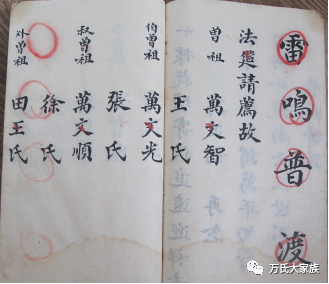 雷鳴普渡
法筵請薦故
曾祖 萬文智
王氏
伯曾祖 萬文光
張氏
叔曾祖 萬文順
徐氏
外曾祖 田王氏
万氏大家族